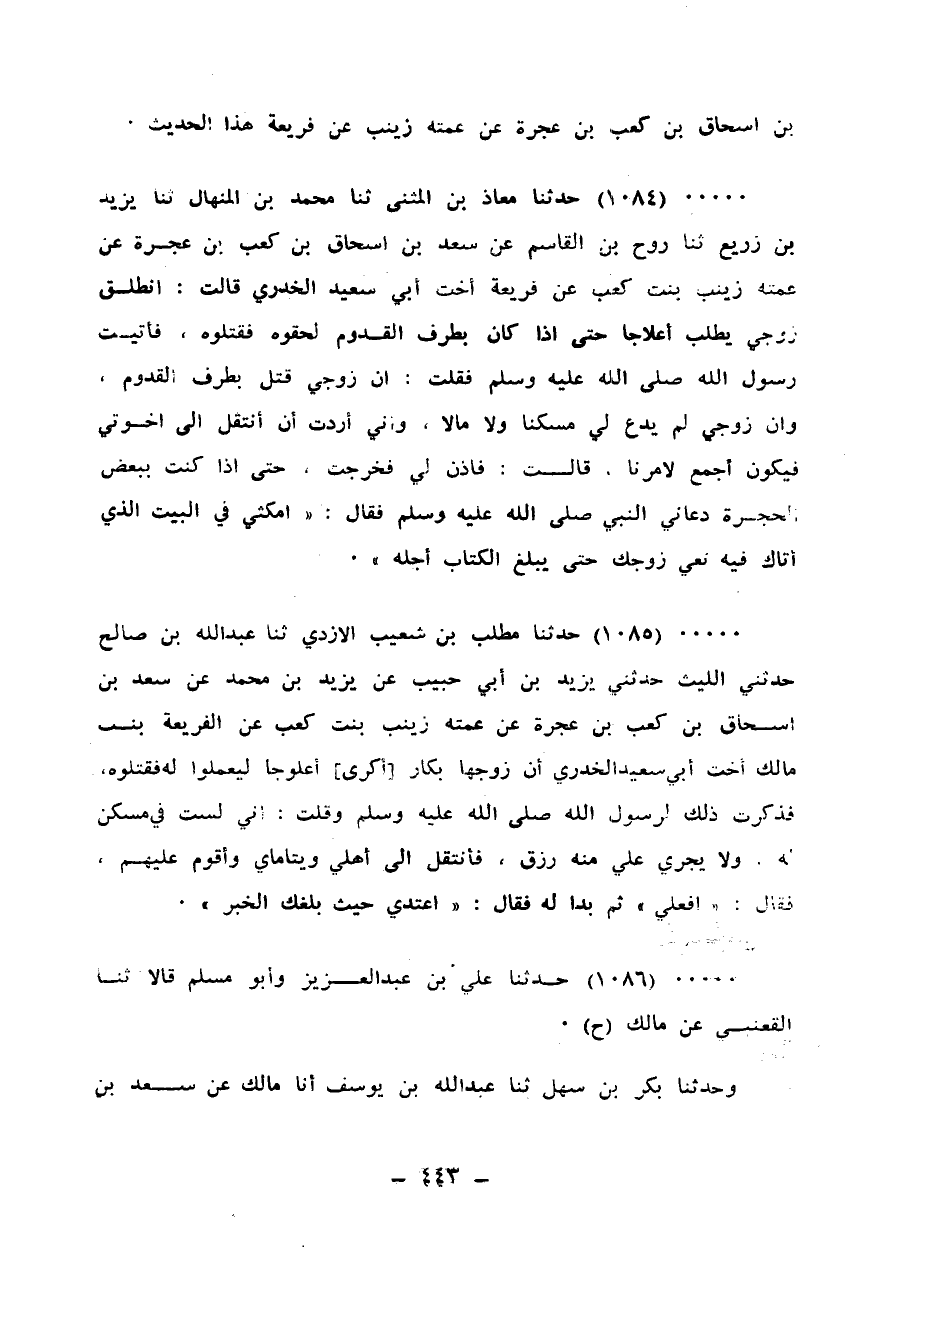 بن اسحاق بن كعب بن عجرة عن عمته زينب عن فريعة هذا الحديث ٠
٠٠٠٠٠ (١٠٨٤) حدثنا معاذ بن المثنى ثنا محمد بن المنهال ثنا يزيد
بن زريع ثنا روح بن القاسم عن سعد بن اسحاق بن كعب بن عجـرة عن
عمته زينب بنت كعب عن فريعة أخت أبي سعيد الخدري قالت : انطلـق
زوجي يطلب أعلاجا حتى اذا كان بطرف القـدوم لحقوه فقتلوه ، فأتيـت
رسول الله صلى الله عليه وسلم فقلت : ان زوجي قتل بطرف القدوم ،
وان زوجي لم يدع لي مسكنا ولا مالا ، واني أردت أن أنتقل الى اخـوتي
فيكون أجمع لامرنا . قالـــت : فاذن لي فخرجت ، حتى اذا كنت ببعض
الحجـرة دعاني النبي صلى الله عليه وسلم فقال : « امكثي في البيت الذي
أتاك فيه نعي زوجك حتى يبلغ الكتاب أجله » ٠
٠٠٠٠٠ (١٠٨٥) حدثنا مطلب بن شعيب الازدي ثنا عبدالله بن صالح
حدثني الليث حدثني يزيد بن أبي حبيب عن يزيد بن محمد عن سعد بن
اســحاق بن كعب بن عجرة عن عمته زينب بنت كعب عن الفريعة بنــت
مالك أخت أبي سعيد الخدري أن زوجها بكار [أكرى] أعلوجا ليعملوا له فقتلوه،
فذكرت ذلك لرسول الله صلى الله عليه وسلم وقلت : اني لست في مسكن
له . ولا يجري علي منه رزق ، فأنتقل الى أهلي ويتاماي وأقوم عليهـم ،
فقال : « افعلي » ثم بدا له فقال : « اعتدي حيث بلغك الخبر » ٠
٠٠٠٠٠ (١٠٨٦) حــدثنا علي بن عبدالعـــزيز وأبو مسلم قالا ثنــا
القعنبــي عن مالك (ح) ٠
وحدثنا بكر بن سهل ثنا عبدالله بن يوسف أنا مالك عن ســـعد بن
- ٤٤٣ -